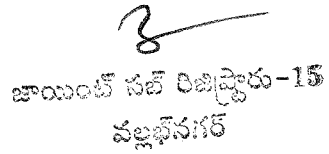 జాయింట్ సబ్ రిజిస్ట్రారు-15
వల్లభ్‌నగర్